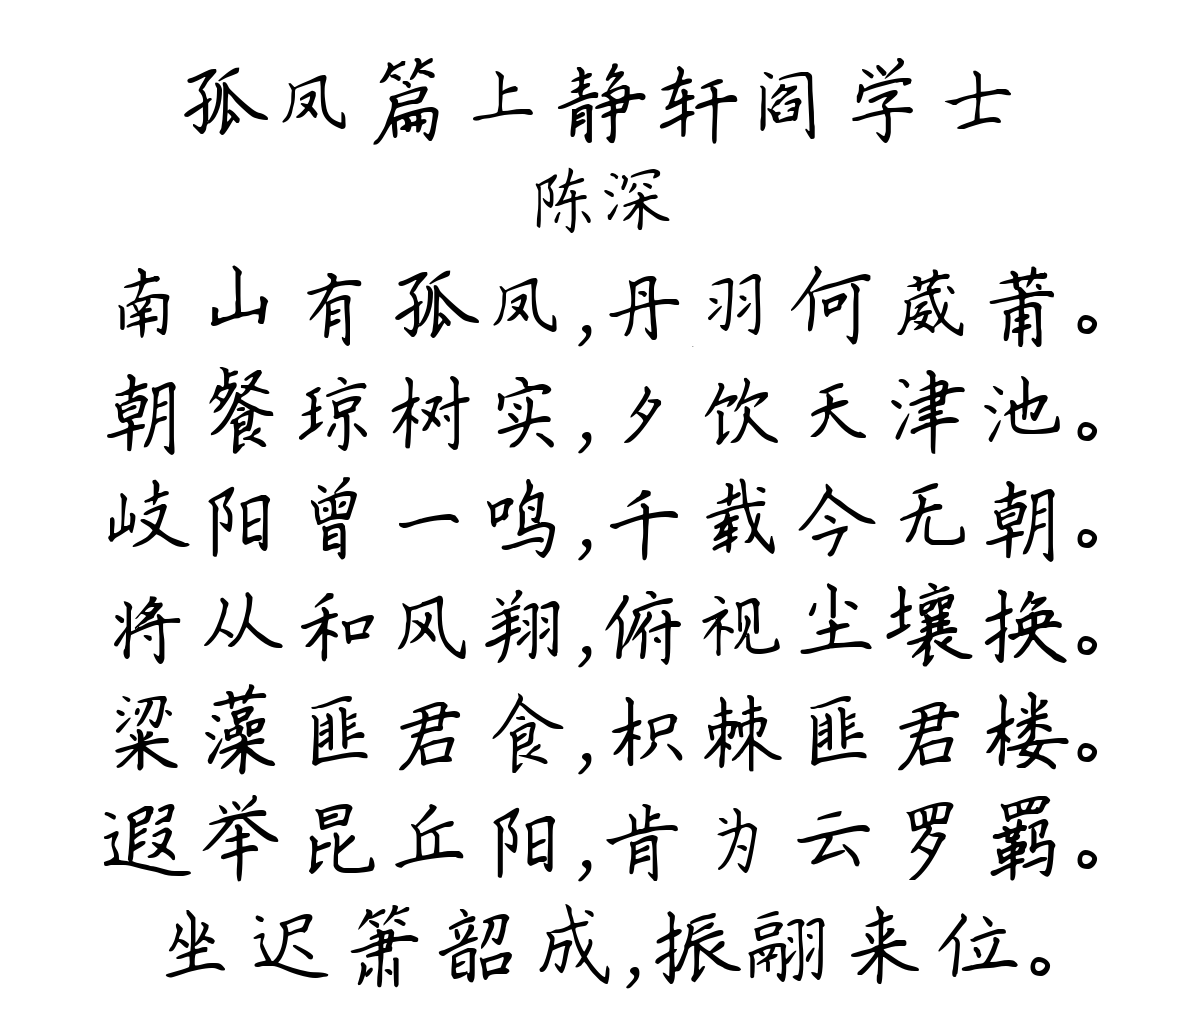 孤凤篇上静轩阎学士
陈深
南山有孤凤,丹羽何葳莆。
朝餐琼树实,夕饮天津池。
岐阳曾一鸣,千载今无朝。
将从和风翔,俯视尘壤换。
粱藻匪君食,枳棘匪君楼。
遐举昆丘阳,肯为云罗羁。
坐迟箫韶成,振翮来位。